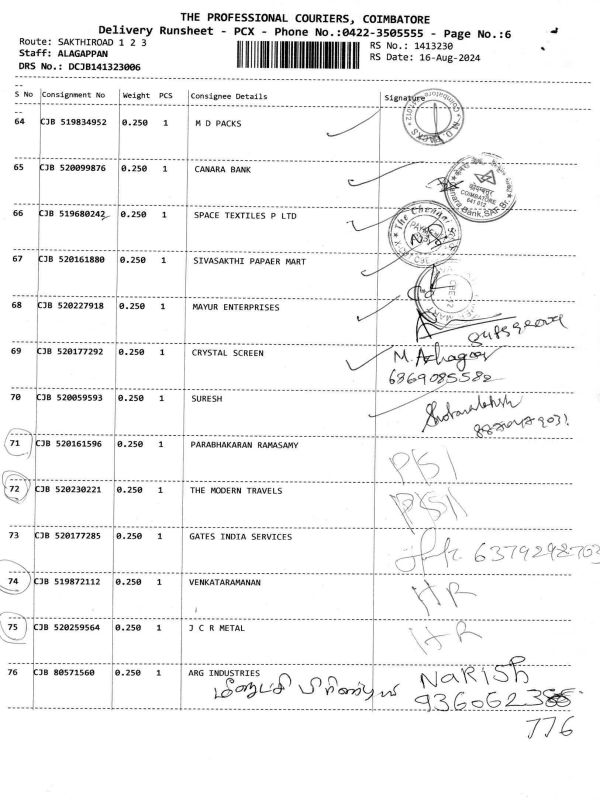 THE PROFESSIONAL COURIERS, COIMBATORE
Delivery Runsheet - PCX - Phone No.:0422-3505555 - Page No.:6
Route: SAKTHIROAD 1 2 3
RS No.: 1413230
Staff: ALAGAPPAN
RS Date: 16-Aug-2024
DRS No.: DCJB141323006
S No Consignment No Weight PCS Consignee Details Signature
64 CJB 519834952 0.250 1 M D PACKS
65 CJB 520099876 0.250 1 CANARA BANK
COIMBATORE
641 012
66 CJB 519680242 0.250 1 SPACE TEXTILES P LTD
67 CJB 520161880 0.250 1 SIVASAKTHI PAPAER MART
68 CJB 520227918 0.250 1 MAYUR ENTERPRISES
69 CJB 520177292 0.250 1 CRYSTAL SCREEN
6369085582
70 CJB 520059593 0.250 1 SURESH
71 CJB 520161596 0.250 1 PARABHAKARAN RAMASAMY
72 CJB 520230221 0.250 1 THE MODERN TRAVELS
73 CJB 520177285 0.250 1 GATES INDIA SERVICES
74 CJB 519872112 0.250 1 VENKATARAMANAN HR
75 CJB 520259564 0.250 1 J C R METAL HR
76 CJB 80571560 0.250 1 ARG INDUSTRIES NARISH
776